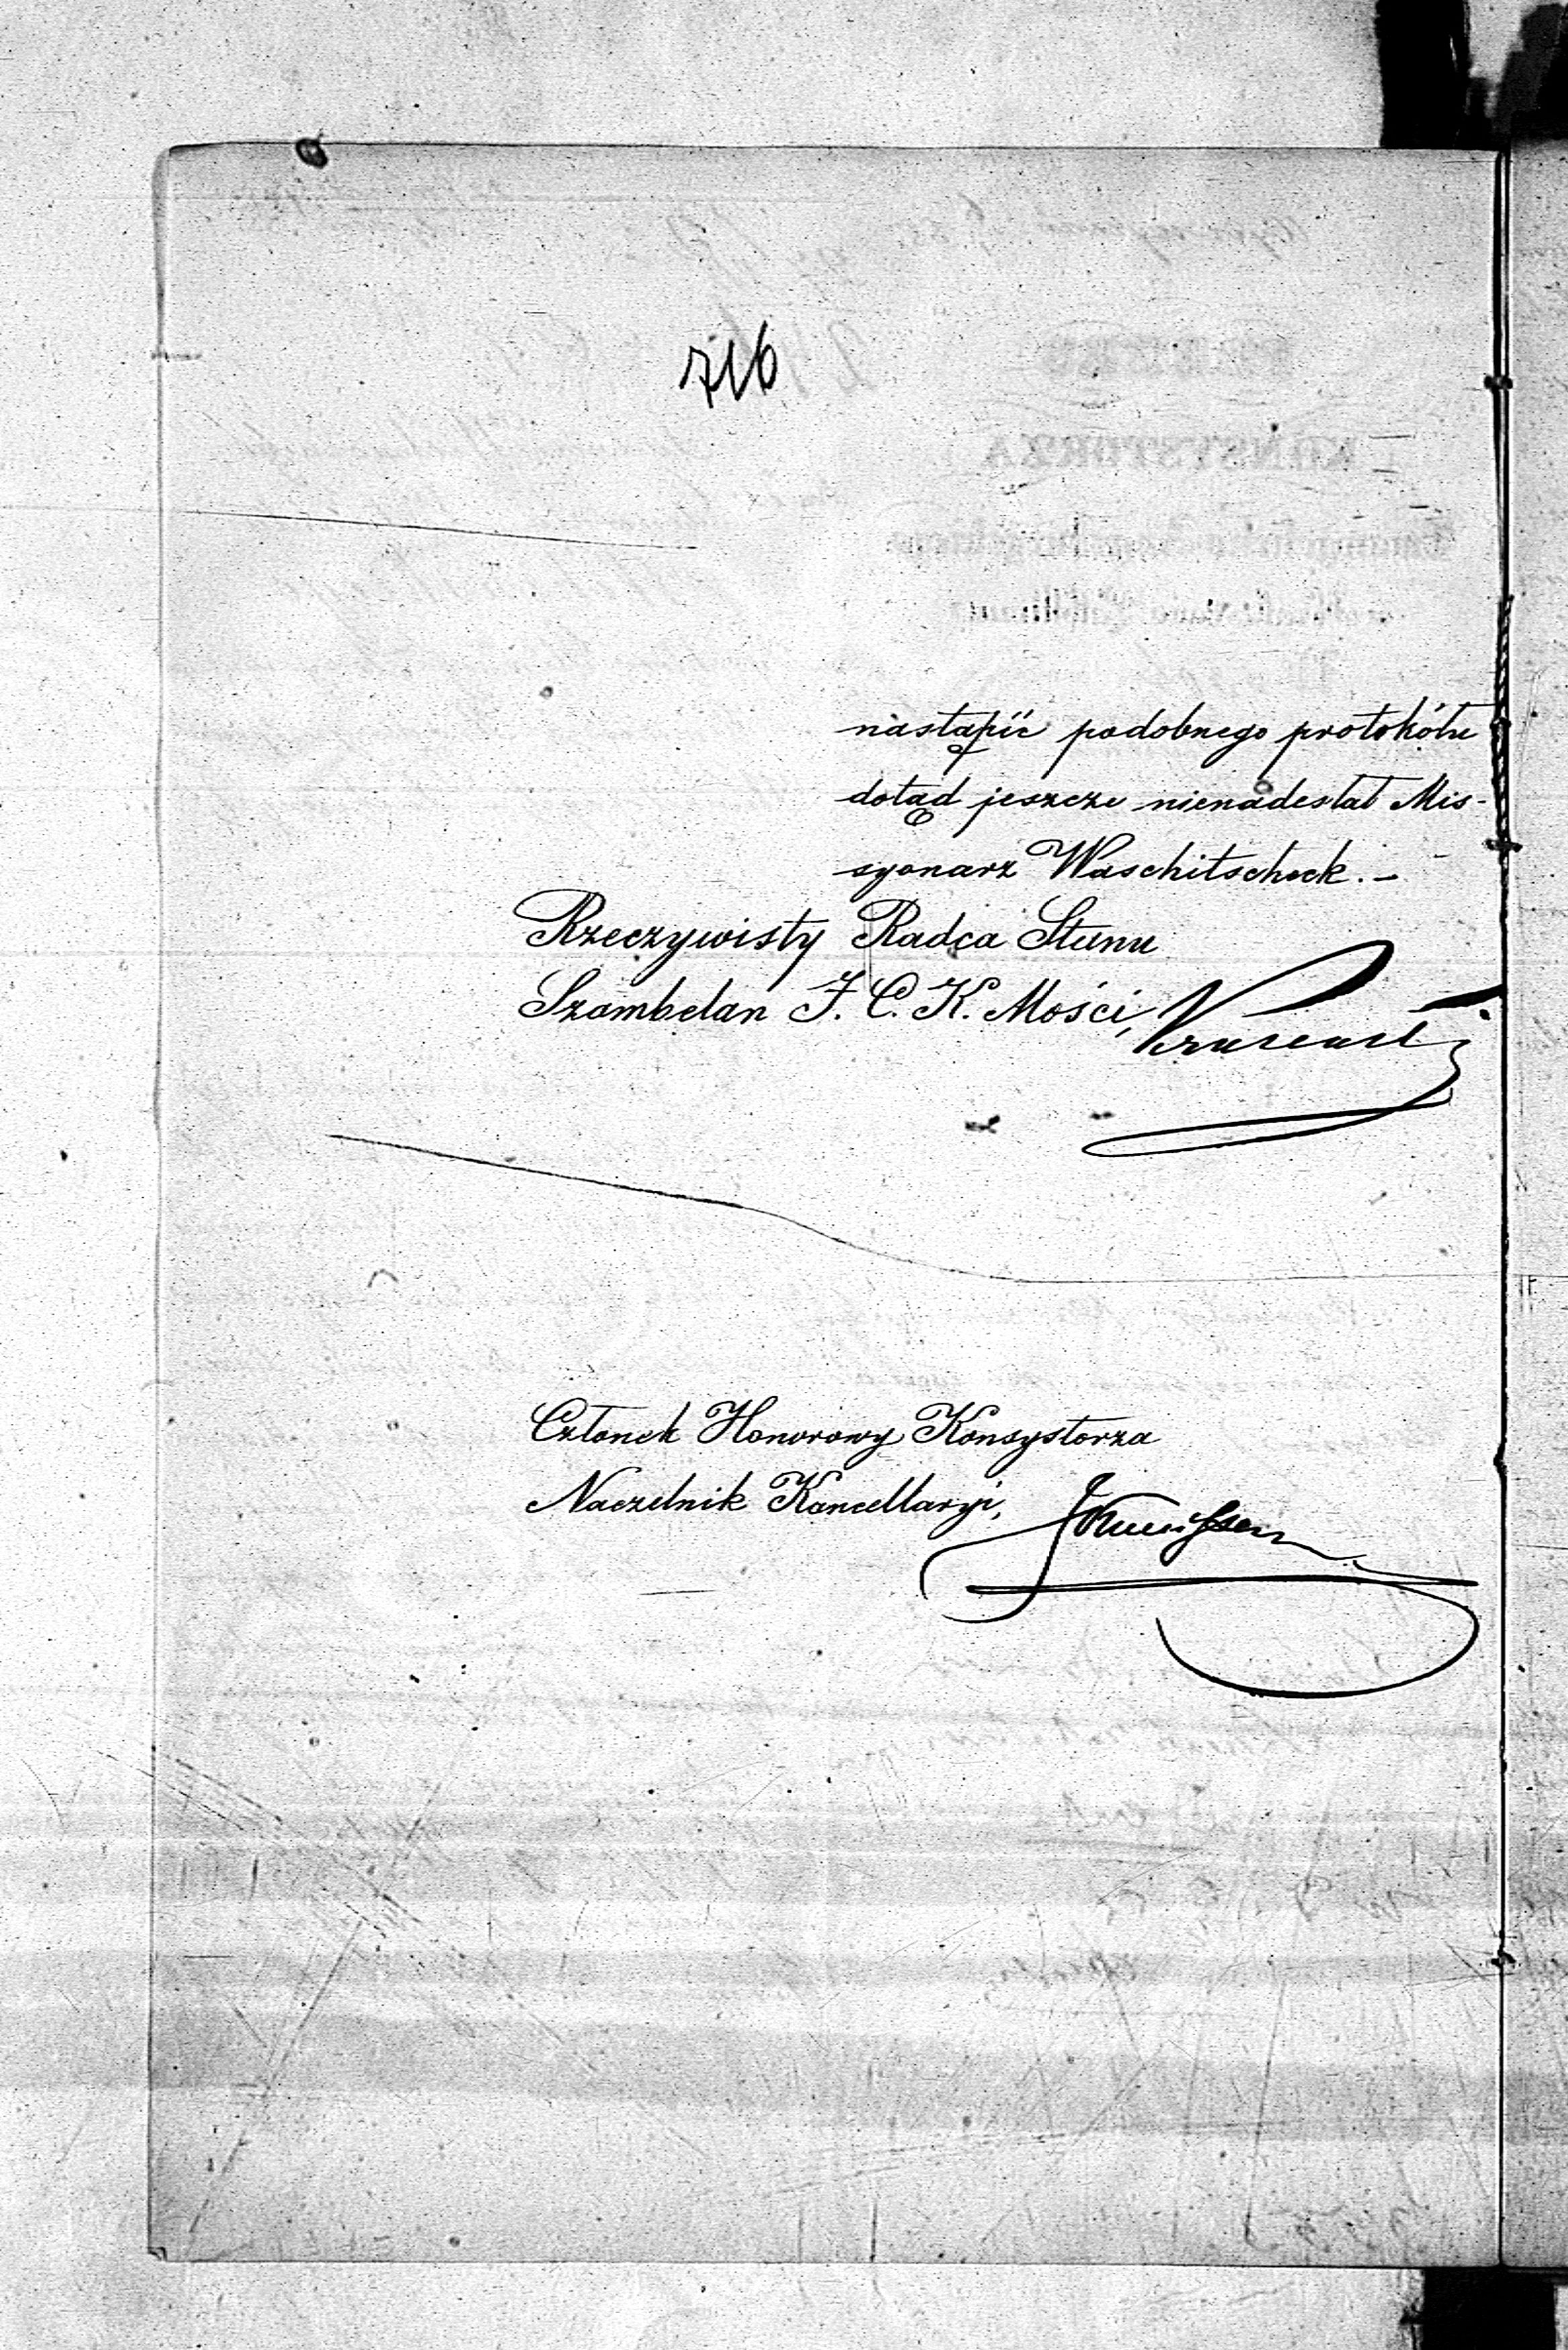 716
nastąpić podobnego protokółu
dotąd jeszcze nienadesłał Mis-
syonarz Waschitscheck. –
Rzeczywisty Radca Stanu
Szambelan J. C. K. Mości,
Członek Honorowy Konsystorza
Naczelnik Kancellaryi,